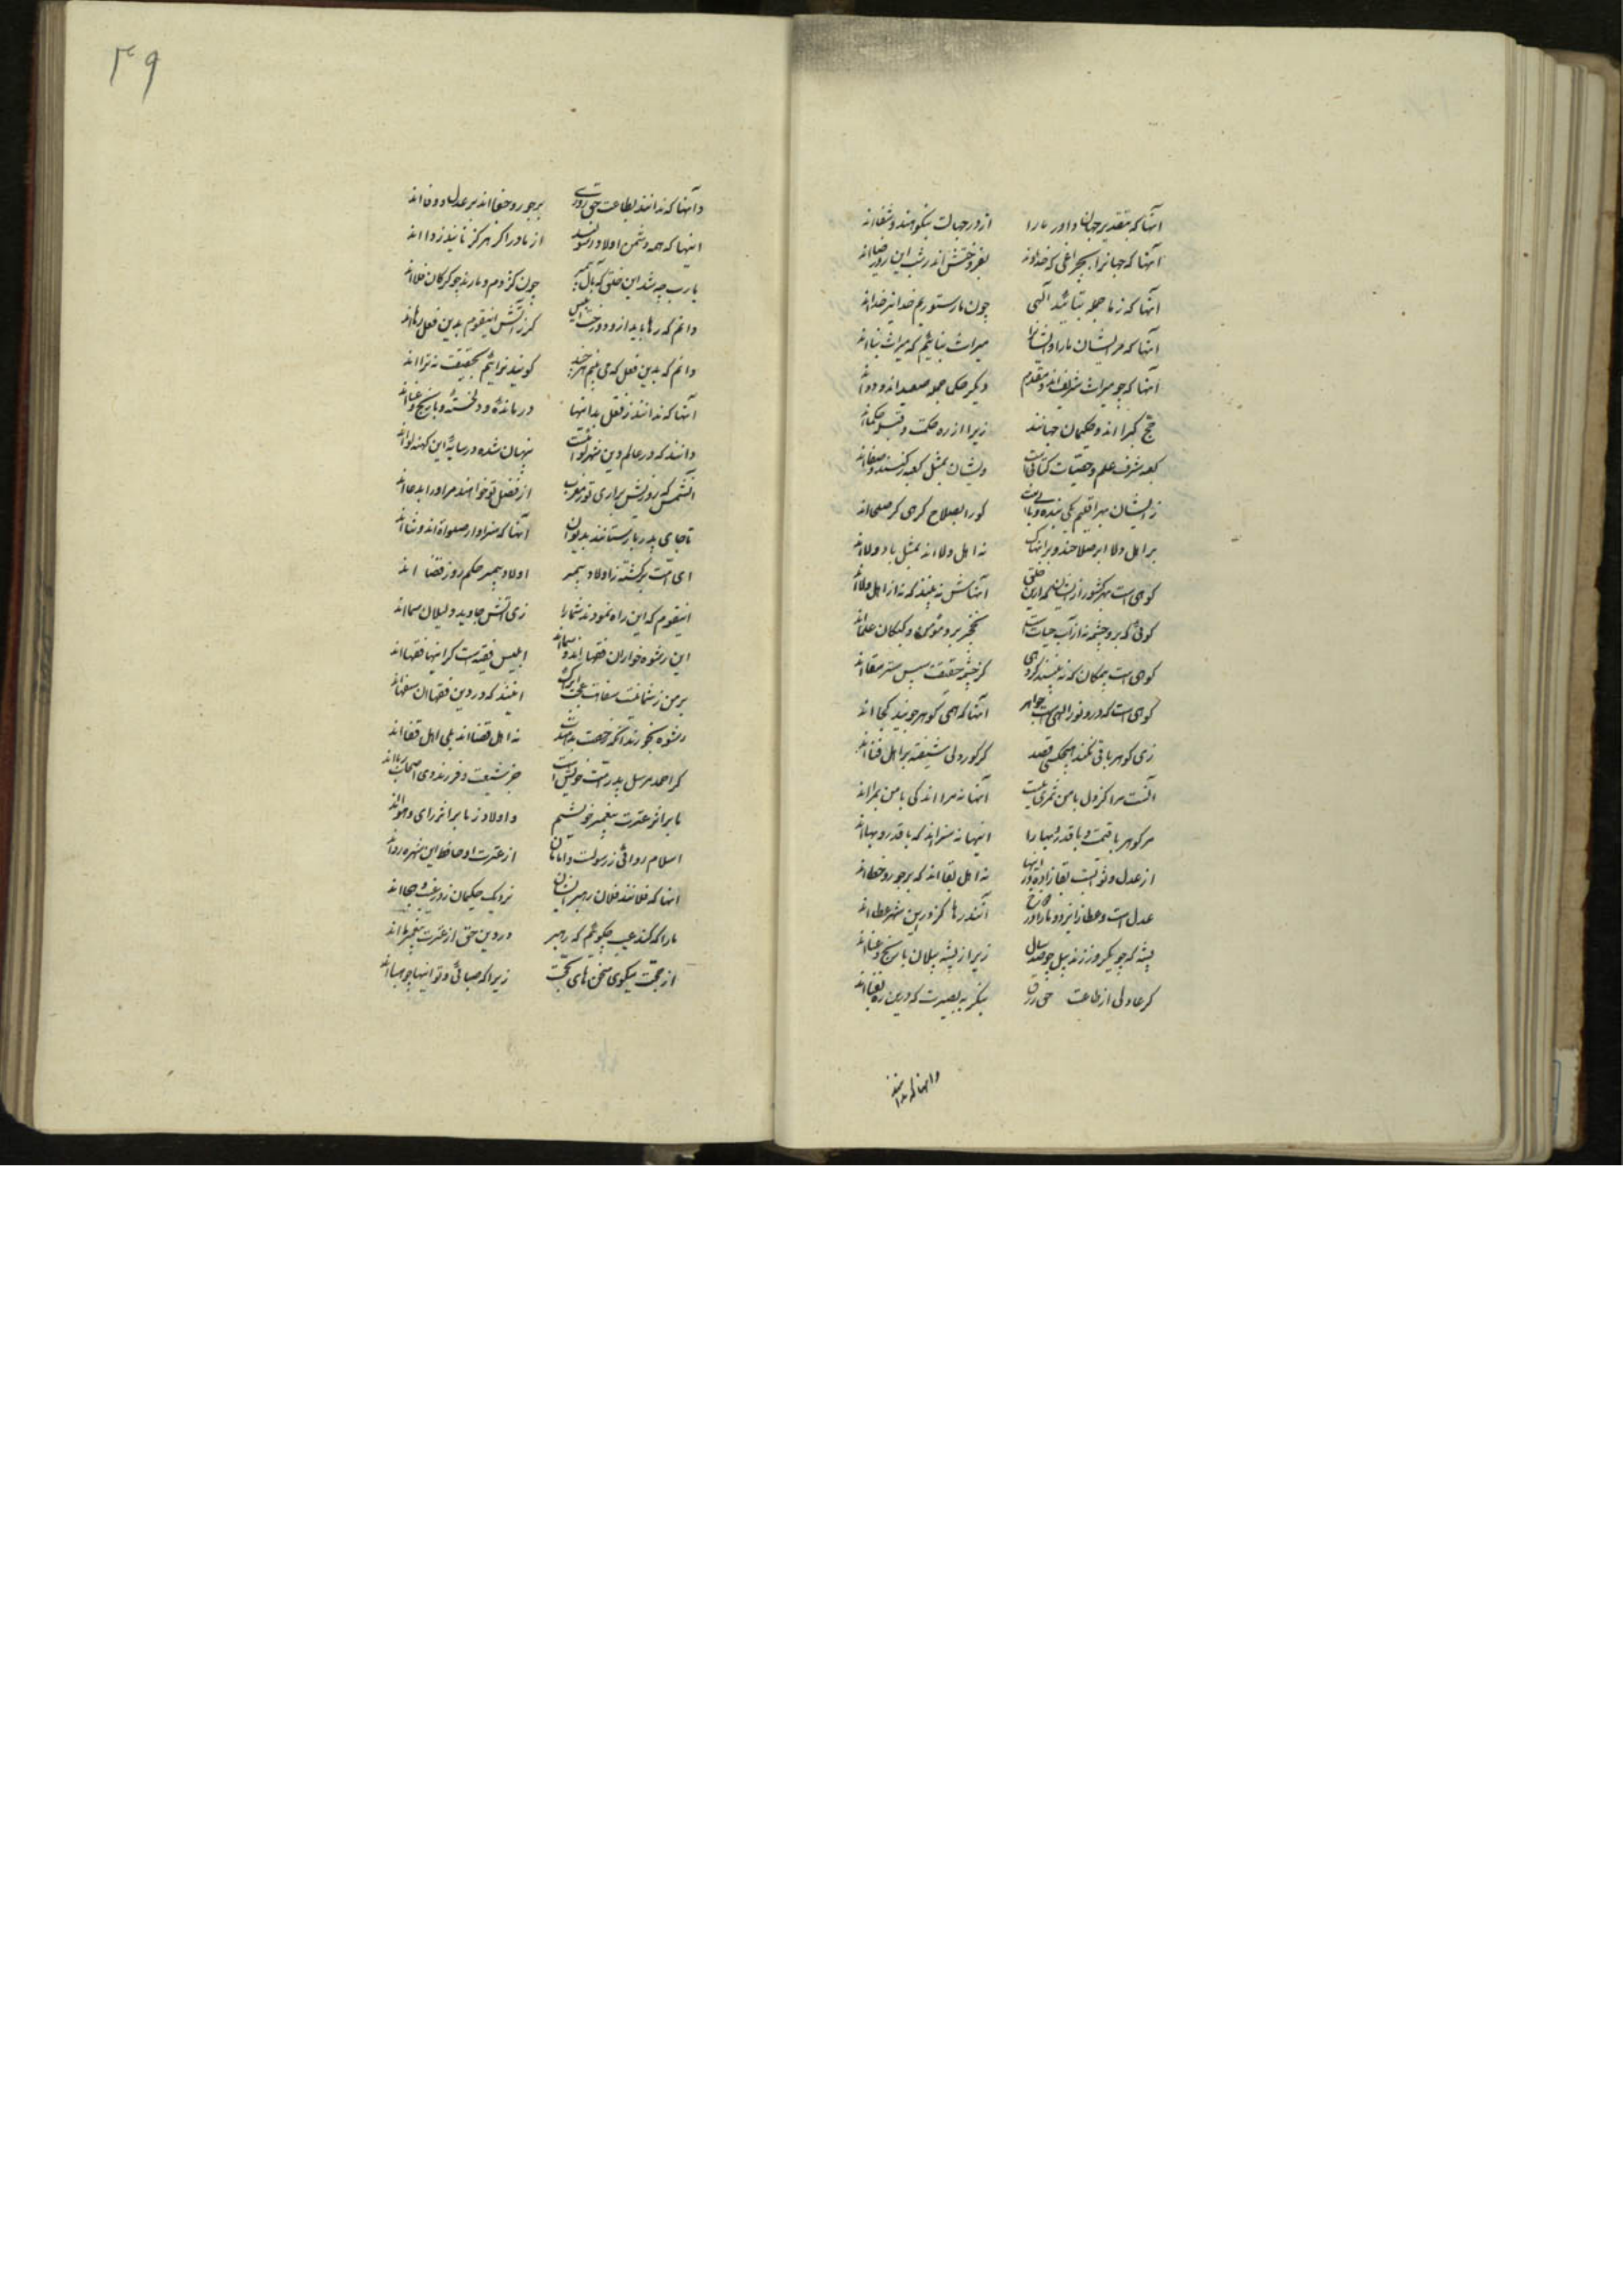 آنها که بتقدیر جهان داور ما را از ورجهالت بنکوهند و شقااند
آنها که جهانرا بچراغی که خداوند بفروختش اندر شب این روز ضیااند
آنها که ز ما جمله بتأئید آلهی چون ما ز ستوریم خدا نیز خدااند
آنها که مر ایشان ما را و ایشانرا میراث نیابیم که میراث نیااند
آنها که چو میراث شریف اند و مقدم دیگر حکما جمله صعید اند و دوااند
حج کبرا اند و حکیمان جهانند زیرا از ره حکمت و قبله حکمااند
کعبه شرف علم و خفیات کتابست ویشان بمثل کعبه رکنند و صفااند
زیشان بهر اقلیم یکی بنده کورا بصلاح کرهی کر صلحااند
بر اهل ولا ابر صلاحند و بر اینها نه اهل ولااند بمثل باد و بلااند
کوهی است بهر کشور ازیشان آنهاش نه بینند که نه از اهل ولااند
کوئی که برو چشمه ز آب حیاتست نخجیر برو مؤمن و کبکان علمااند
کوهی است بیمکان که نه بینند کروهی کز چشم حقیقت سپس ستر سقااند
کوهی است که درو نور الهی است جواهر آنها که همی کوهر جویند کجااند
زی کوهر باقی نکند هیچکسی قصد کر کور دلی شیفته بر اهل فنااند
آنست مرا کز دل با من بمری نیست آنها نه مرااند کی با من بمرااند
مر کوهر با قیمت و با قدر و بها را اینها نه سزااند که با قدر و بهااند
از عدل و ثو نیست بقا زاده و زینها نه اهل بقااند که بر جور و خطااند
عدل است و عطا زایزد و ما را و آنند رها کز در این شهر عطااند
پشه که چو یکروز زند پیل چو صد سال زیرا ز پشه پیلان با رنج و عنااند
کر عادلی از طاعت حق رزق بنکر به بصیرت که درین ره
وانها که ندانند
۴۹
وآنها که ندانند بطاعت حق روزی بر جور و جفااند بر عدل و وفااند
اینها که همه دشمن اولاد رسولند از مادر اکر هرکز نایند روااند
یا رب چه شد این خلق که با آل پیمبر چون کژدم و مارند چو کرکان فلااند
دانم که رها یابد از دوزخت ابلیس کر زآتش اینقوم بدین فعل رهااند
دانم که بدین فعل که می بینم هر چند کویند تراییم بحقیقت نه ترااند
آنها که ندانند ز فعل بد اینها درمانده و دلخسته و با رنج و عنااند
دانند که در عالم دین شهره لوائست پنهان شده در سایه این کهنه لوااند
آنشمس که روزیش براری تو ز مغرب از فضل تو خواهند مر او را بدعااند
تا جای پدر باز ستانند بدیوان آنها که سزاوار صلوة اند و ثنااند
ای امت برکشته ز اولاد پیمبر اولاد پیمبر حکم روز قضااند
اینقوم که این راه نمودند شما را زی آتش جاوید دلیلان شمااند
این رشوه خواران فقهااند شمااند ابلیس فقیه است کر اینها فقهااند
بر من ز شما نیست سفاهت عجب ایراک اینند که در دین فقها از سفهااند
رشوه بخورند آنکه رخصت بدهندت نه اهل قضااند بلی اهل قفااند
کر احمد مرسل پدر امت خویش است جز شیعت و فرزند وی
ما بر اثر عترت پیغمبر خویشیم و اولاد زنا بر اثر رای و هوااند
اسلام ردائی ز رسول است و امامان از عترت او حافظ این شهره ردااند
آنها که فلانند فلان رهبر ایشان نزدیک حکیمان ز در عیب و هجااند
ما را که کند عیب چکوئیم که رهبر در دین حق از عترت پیغمبر مااند
از حجت میکوی سخن های بحجت زیرا که صبائی و تو اینها چو هبااند